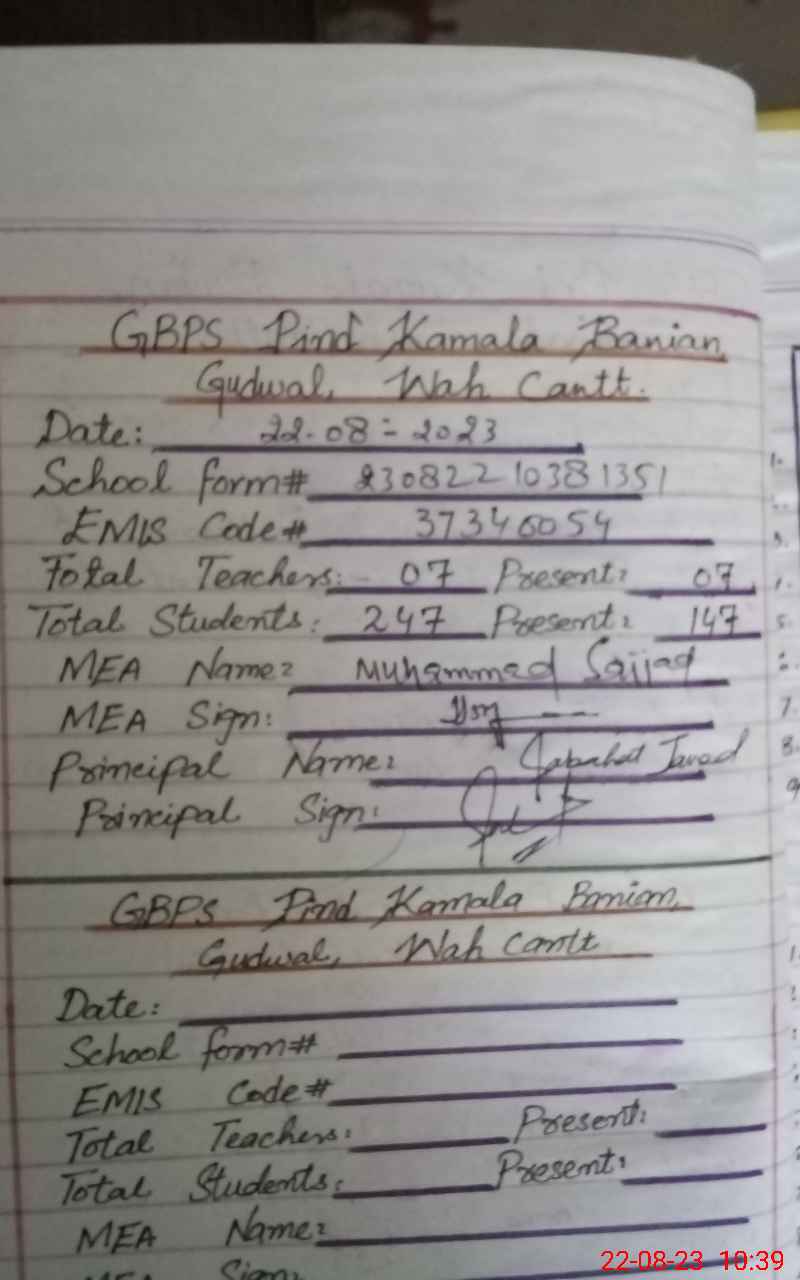 GBPS Pind Kamala Banian,
Gudwal, Wah Cantt.
Date: 22-08-2023
School form# 23082210381351
EMIS Code# 37340054
Total Teachers: 07 Present: 07
Total Students: 247 Present: 147
MEA Name: Muhammad Sajjad
MEA Sign:
Principal Name: Sabahat Javed
Principal Sign:
GBPS Pind Kamala Banian,
Gudwal, Wah Cantt
Date:
School form#
EMIS Code#
Total Teachers: Present:
Total Students: Present:
MEA Name:
MEA Sign:
22-08-23 10:39